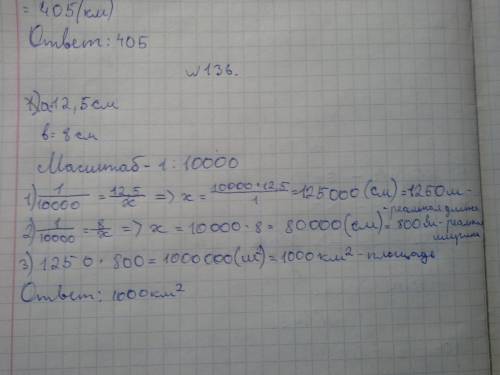 = 405(км)
Ответ: 405
№136.
1) a=12,5 см
b= 8 см
Масштаб - 1:10000
1) 1/10000 = 12,5/x => x = 10000·12,5/1 = 125000 (см) = 1250м - реальная длина
2) 1/10000 = 8/x => x = 10000·8 = 80000 (см) = 800 м - реальная ширина
3) 1250·800=1000000(м²)=1000км² - площадь
Ответ: 1000км²